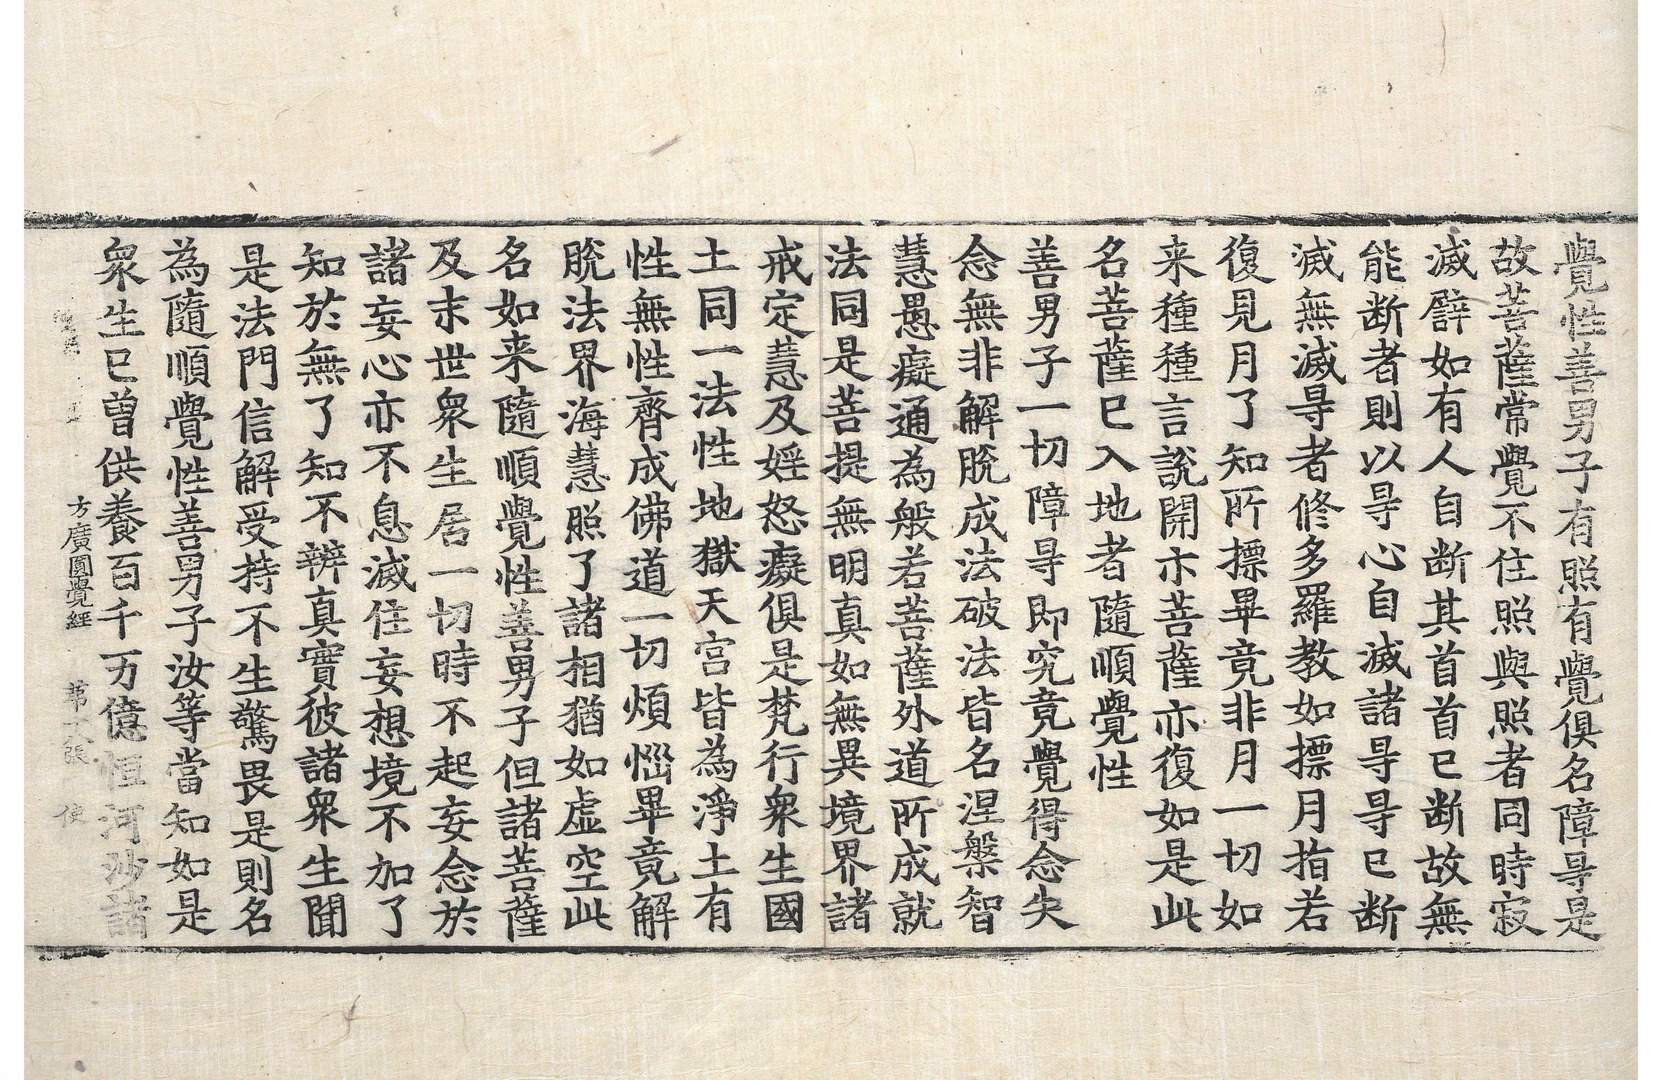 覺性善男子有照有覺俱名障㝵是
故菩薩常覺不住照與照者同時寂
滅譬如有人自断其首首已断故無
能断者則以㝵心自滅諸㝵㝵已断
滅無滅㝵者修多羅教如摽月指若
復見月了知所摽畢竟非月一切如
来種種言說開示菩薩亦復如是此
名菩薩已入地者隨順覺性
善男子一切障㝵即究竟覺得念失
念無非解脫成法破法皆名涅槃智
慧愚癡通為般若菩薩外道所成就
法同是菩提無明真如無異境界諸
戒定慧及婬怒癡俱是梵行衆生國
土同一法性地獄天宫皆為淨土有
性無性齊成佛道一切煩惱畢竟解
脫法界海慧照了諸相猶如虛空此
名如来隨順覺性善男子但諸菩薩
及末世衆生居一切時不起妄念於
諸妄心亦不息滅住妄想境不加了
知於無了知不辨真實彼諸衆生聞
是法門信解受持不生驚畏是則名
為隨順覺性善男子汝等當知如是
衆生已曾供養百千万億恒河沙諸
方廣圓覺經 第 張 使